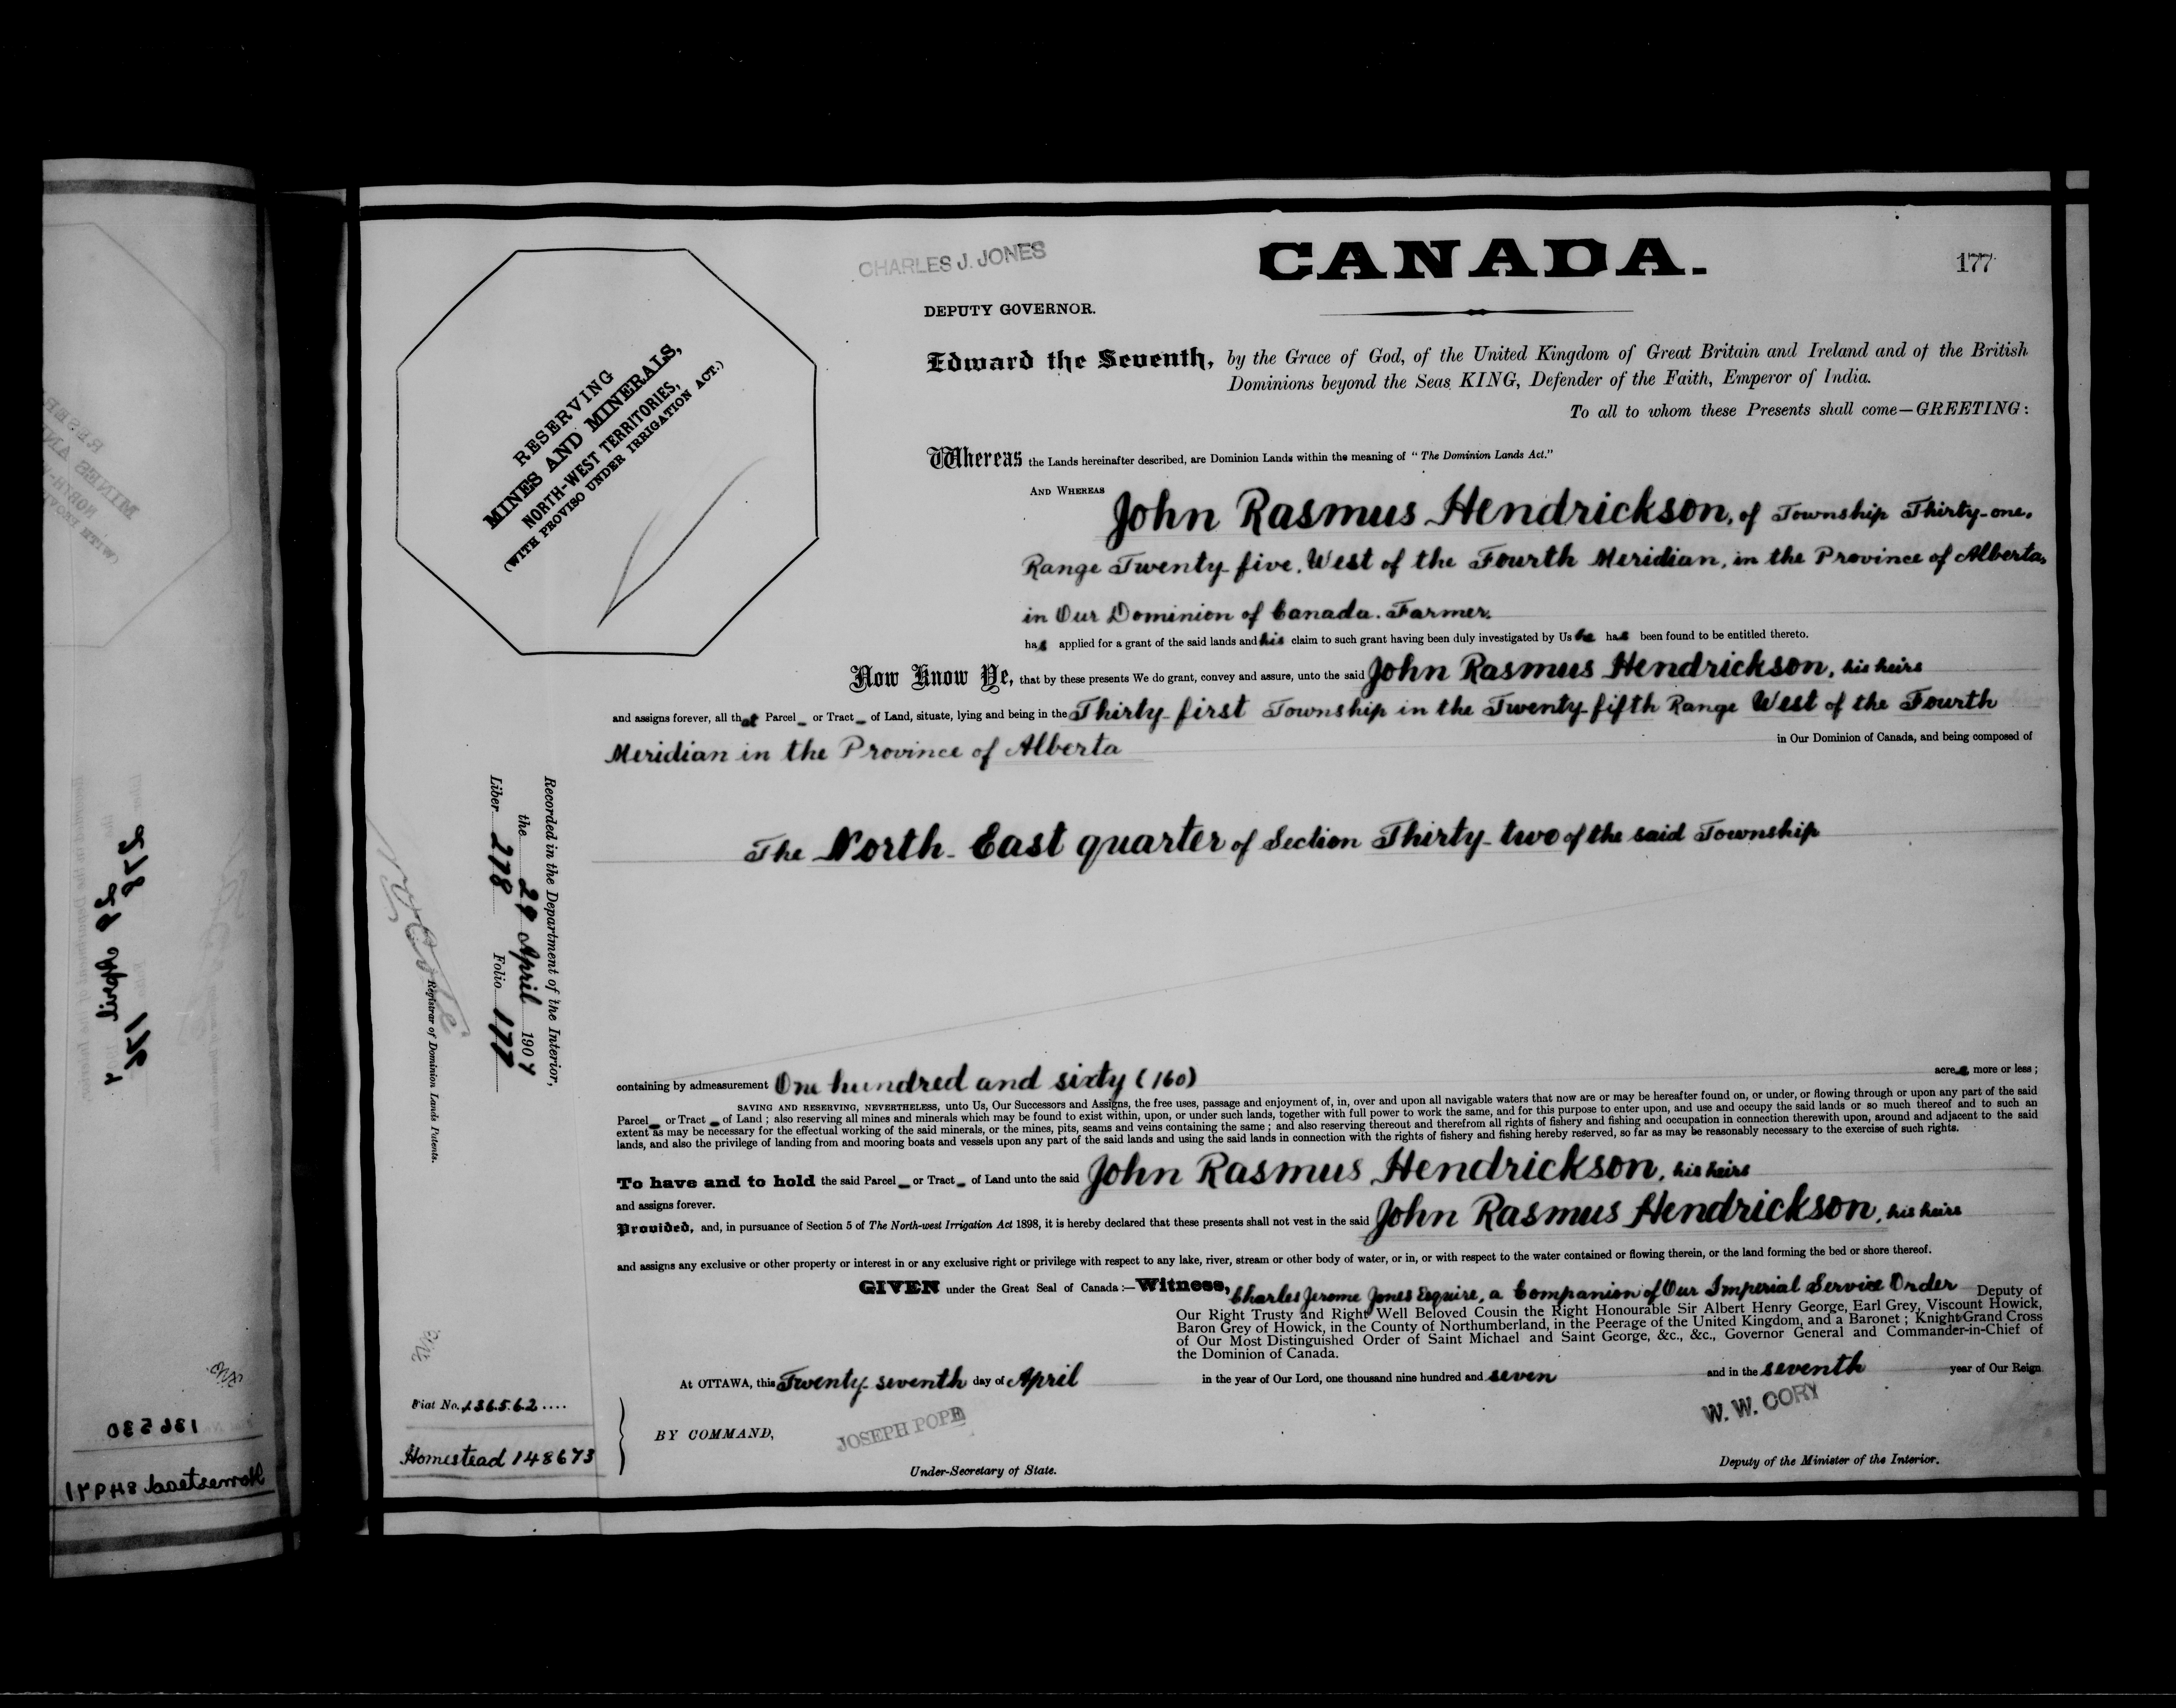 CHARLES J. JONES
CANADA.
177
DEPUTY GOVERNOR.
RESERVING
MINES AND MINERALS,
NORTH-WEST TERRITORIES,
(WITH PROVISO UNDER IRRIGATION ACT.)
Edward the Seventh, by the Grace of God, of the United Kingdom of Great Britain and Ireland and of the British
Dominions beyond the Seas KING, Defender of the Faith, Emperor of India.
To all to whom these Presents shall come—GREETING:
Whereas the Lands hereinafter described, are Dominion Lands within the meaning of "The Dominion Lands Act."
AND WHEREAS John Rasmus Hendrickson, of Township Thirty-one,
Range Twenty-five, West of the Fourth Meridian, in the Province of Alberta,
in Our Dominion of Canada. Farmer,
has applied for a grant of the said lands and his claim to such grant having been duly investigated by Us he has been found to be entitled thereto.
Now Know Ye, that by these presents We do grant, convey and assure, unto the said John Rasmus Hendrickson, his heirs
and assigns forever, all that Parcel or Tract of Land, situate, lying and being in the Thirty-first Township in the Twenty-fifth Range West of the Fourth
Meridian in the Province of Alberta in Our Dominion of Canada, and being composed of
The North-East quarter of Section Thirty-two of the said Township
Recorded in the Department of the Interior,
the 29 April 1907
Liber 278 Folio 177
Registrar of Dominion Lands Patents.
containing by admeasurement One hundred and sixty (160) acres more or less;
SAVING AND RESERVING, NEVERTHELESS, unto Us, Our Successors and Assigns, the free uses, passage and enjoyment of, in, over and upon all navigable waters that now are or may be hereafter found on, or under, or flowing through or upon any part of the said
Parcel or Tract of Land; also reserving all mines and minerals which may be found to exist within, upon, or under such lands, together with full power to work the same, and for this purpose to enter upon, and use and occupy the said lands or so much thereof and to such an
extent as may be necessary for the effectual working of the said minerals, or the mines, pits, seams and veins containing the same; and also reserving thereout and therefrom all rights of fishery and fishing and occupation in connection therewith upon, around and adjacent to the said
lands, and also the privilege of landing from and mooring boats and vessels upon any part of the said lands and using the said lands in connection with the rights of fishery and fishing hereby reserved, so far as may be reasonably necessary to the exercise of such rights.
To have and to hold the said Parcel or Tract of Land unto the said John Rasmus Hendrickson, his heirs
and assigns forever.
Provided, and, in pursuance of Section 5 of The North-west Irrigation Act 1898, it is hereby declared that these presents shall not vest in the said John Rasmus Hendrickson, his heirs
and assigns any exclusive or other property or interest in or any exclusive right or privilege with respect to any lake, river, stream or other body of water, or in, or with respect to the water contained or flowing therein, or the land forming the bed or shore thereof.
GIVEN under the Great Seal of Canada:—Witness, Charles Jerome Jones Esquire, a Companion of Our Imperial Service Order Deputy of
Our Right Trusty and Right Well Beloved Cousin the Right Honourable Sir Albert Henry George, Earl Grey, Viscount Howick,
Baron Grey of Howick, in the County of Northumberland, in the Peerage of the United Kingdom, and a Baronet; Knight Grand Cross
of Our Most Distinguished Order of Saint Michael and Saint George, &c., &c., Governor General and Commander-in-Chief of
the Dominion of Canada.
At OTTAWA, this Twenty-seventh day of April in the year of Our Lord, one thousand nine hundred and seven and in the seventh year of Our Reign
Fiat No. 136562
Homestead 148673
BY COMMAND,
JOSEPH POPE
Under-Secretary of State.
W. W. CORY
Deputy of the Minister of the Interior.